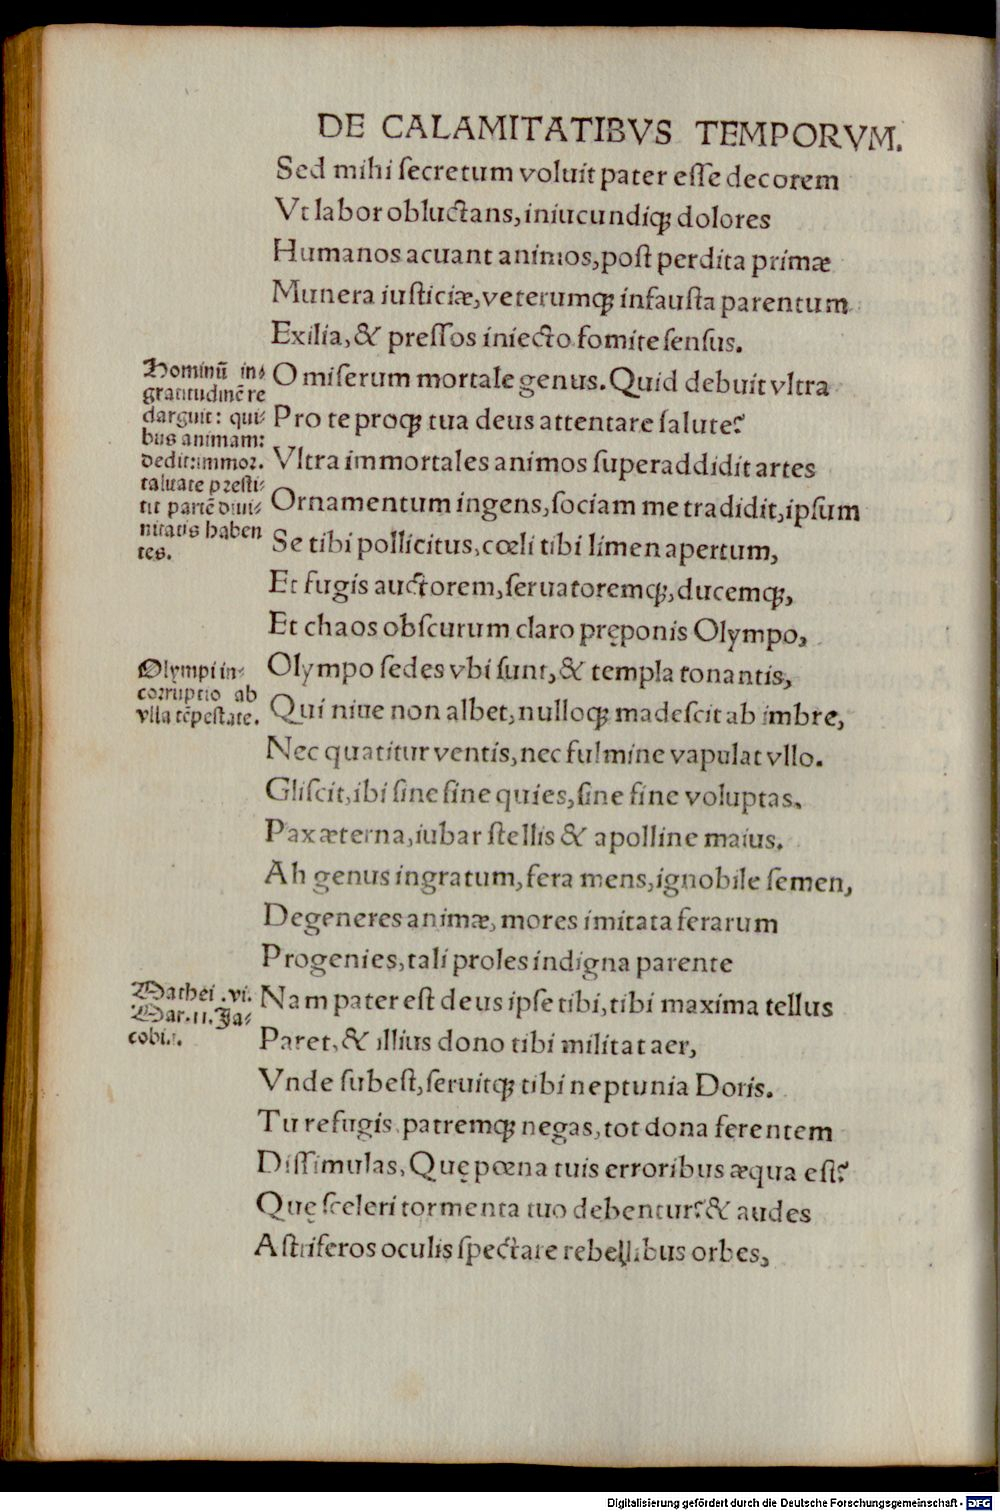 DE CALAMITATIBVS TEMPORVM.
Sed mihi ſecretum voluit pater eſſe decorem
Vt labor obluctans, iniucundiq; dolores
Humanos acuant animos, poſt perdita primæ
Munera iuſticiæ, veterumq; infauſta parentum
Exilia, & preſſos iniecto fomite ſenſus.
O miſerum mortale genus. Quid debuit vltra
Pro te proq; tua deus attentare ſalute?
Vltra immortales animos ſuperaddidit artes
Ornamentum ingens, ſociam me tradidit, ipſum
Se tibi pollicitus, cœli tibi limen apertum,
Et fugis auctorem, ſeruatoremq;, ducemq;,
Et chaos obſcurum claro pręponis Olympo,
Olympo ſedes vbi ſunt, & templa tonantis,
Qui niue non albet, nulloq; madeſcit ab imbre,
Nec quatitur ventis, nec fulmine vapulat vllo.
Gliſcit, ibi ſine fine quies, ſine fine voluptas,
Pax æterna, iubar ſtellis & apolline maius.
Ah genus ingratum, fera mens, ignobile ſemen,
Degeneres animæ, mores imitata ferarum
Progenies, tali proles indigna parente
Nam pater eſt deus ipſe tibi, tibi maxima tellus
Paret, & illius dono tibi militat aer,
Vnde ſubeſt, ſeruitq; tibi neptunia Doris.
Tu refugis patremq; negas, tot dona ferentem
Diſſimulas, Quę pœna tuis erroribus æqua eſt?
Quę ſceleri tormenta tuo debentur? & audes
Aſtriferos oculis ſpectare rebellibus orbes,
Hominū in-
gratitudinē re
darguit: qui-
bus animam:
dedit: immor.
talitate preſti-
tit partē diui-
nitatis haben
tes.
Olympi in-
corruptio ab
vlla tēpeſtate.
Mathei .vi.
Mar.11. Ja-
cobi.1.
Digitalisierung gefördert durch die Deutsche Forschungsgemeinschaft - DFG